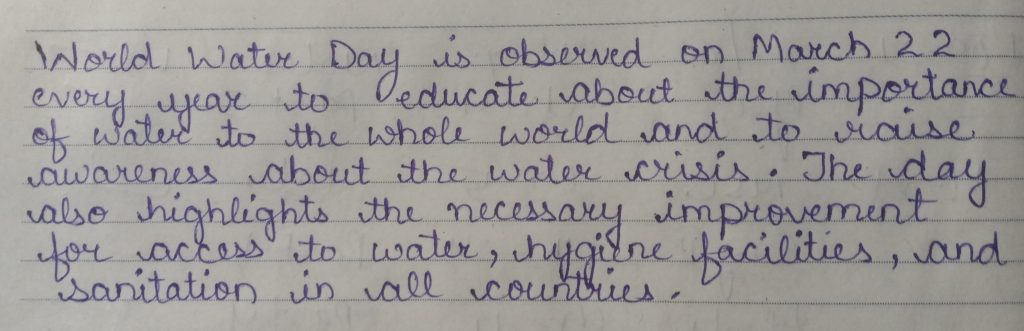 World Water Day is observed on March 22
every year to educate about the importance
of water to the whole world and to raise
awareness about the water crisis. The day
also highlights the necessary improvement
for access to water, hygiene facilities, and
sanitation in all countries.